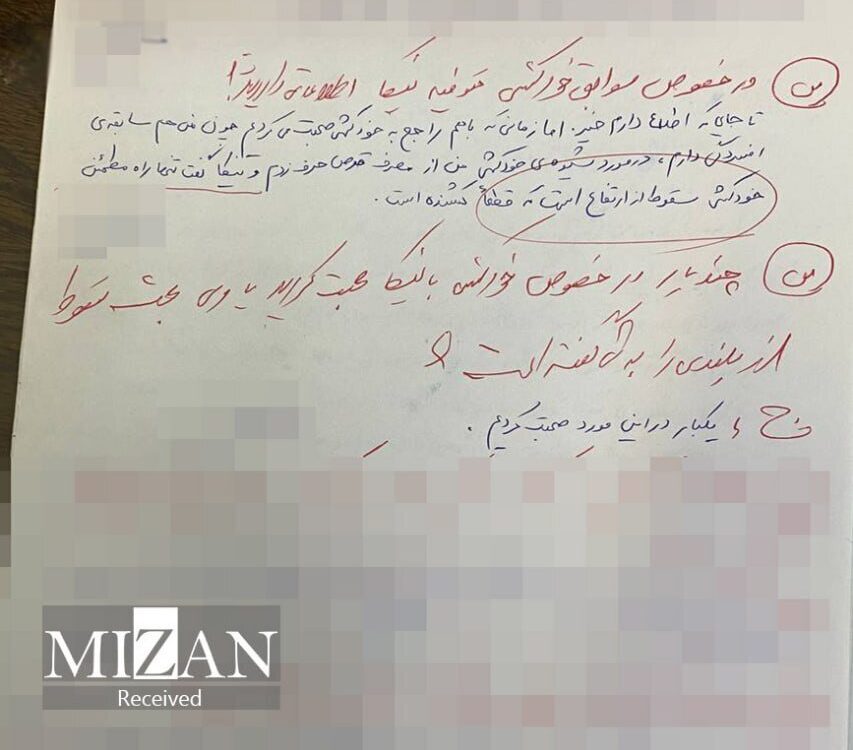 س در خصوص سوابق خودکشی متوفیه نیکا اطلاعاتی دارید؟
تا جایی که اطلاع دارم خیر. اما زمانی که باهم راجع به خودکشی صحبت می کردیم چون من هم سابقه ی
افسردگی دارم، درمورد شیوه ی خودکشی من از مصرف قرص حرف زدم و نیکا گفت تنها راه مطمئن
خودکشی سقوط از ارتفاع است که قطعاً کشنده است.
س چند بار در خصوص خودکشی با نیکا صحبت کردید یا وی بحث سقوط
از بلندی را به کی گفته است؟
ج یکبار در این مورد صحبت کردیم.
MIZAN
Received